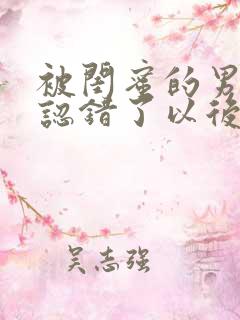 被閏蜜的男
認錯了以後
吴志强